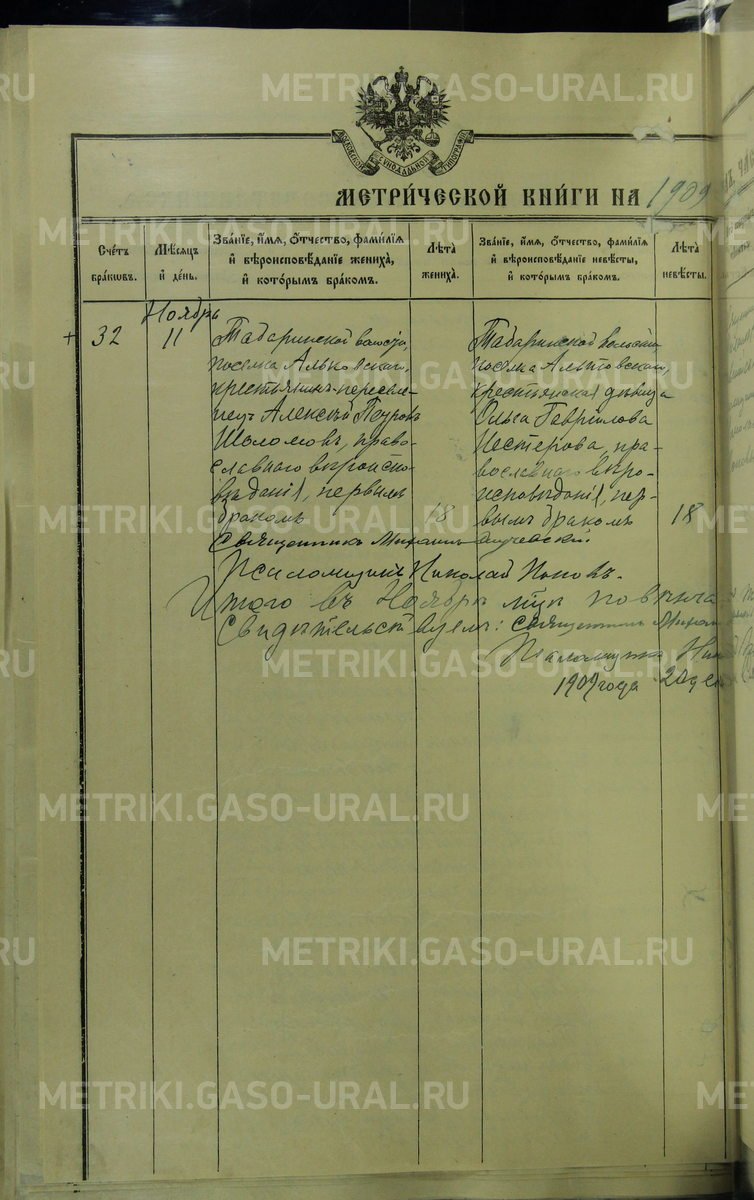 МЕТРИ́ЧЕСКОЙ КНИ́ГИ НА 1909
Сче́тъ бра́кωвъ.
Мѣ́сяцъ и҆ де́нь.
Зва́нїе, и҆́мя, ѻ҆́тчество, фами́лїя и҆ вѣроисповѣ́данїе жениха̀, и҆ кото́рымъ бра́комъ.
Лѣ́та жениха̀.
Зва́нїе, и҆́мя, ѻ҆́тчество, фами́лїя и҆ вѣроисповѣ́данїе невѣ́сты, и҆ кото́рымъ бра́комъ.
Лѣ́та невѣ́сты.
Ноябрь
+ 32
11
Табаринской волости,
поселка Альковскаго,
крестьянинъ-пересле-
нецъ Алексѣй Петровъ
Шоломовъ, право-
славнаго вѣроиспо-
вѣданія, первымъ
бракомъ
18
Табаринской волости,
поселка
крестьянская дѣвица
Ольга Гаврилова
Нестерова, пра-
вославнаго вѣро-
исповѣданія, пер-
вымъ бракомъ
18
Священникъ Михаилъ
Псаломщикъ Николай Поповъ.
Итого въ Ноябрѣ м-цѣ повѣнча
Свидѣтельствуемъ: Священникъ Михаи
Псаломщикъ Ник
1909 года 20 де
METRIKI.GASO-URAL.RU